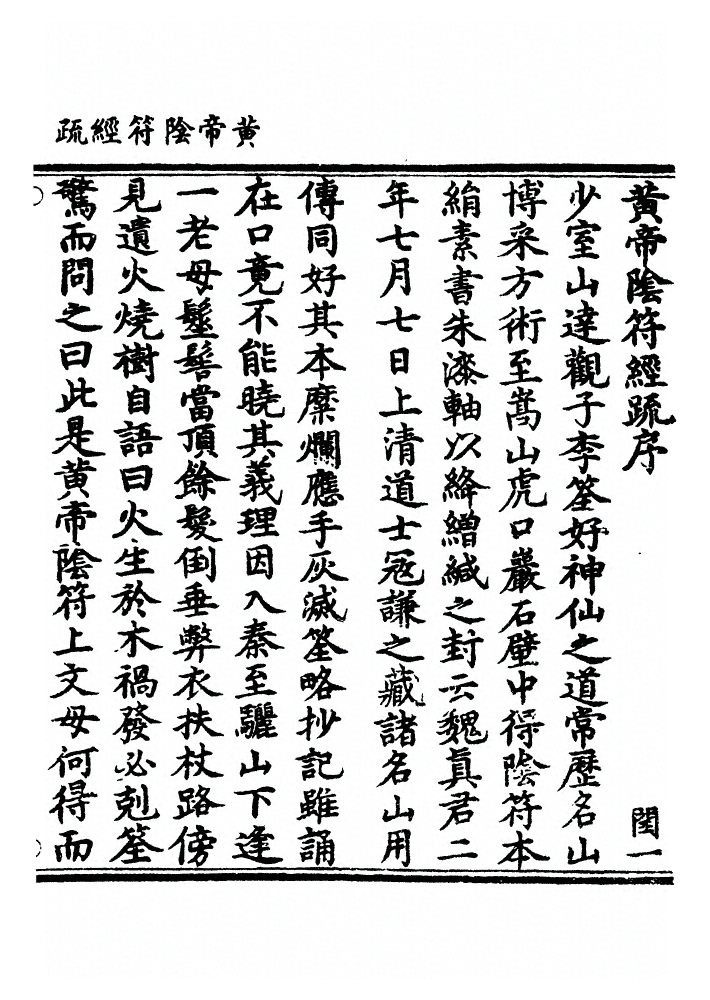 黃帝陰符經疏
黃帝陰符經疏序
閏一
少室山達觀子李筌好神仙之道常歷名山
博采方術至嵩山虎口巖石壁中得陰符本
絹素書朱漆軸以絳繒緘之封云魏真君二
年七月七日上清道士寇謙之藏諸名山用
傳同好其本糜爛應手灰滅筌略抄記雖誦
在口竟不能曉其義理因入秦至驪山下逢
一老母鬢髻當頂餘髮倒垂弊衣扶杖路傍
見遺火燒樹自語曰火生於木禍發必剋筌
驚而問之曰此是黃帝陰符上文母何得而